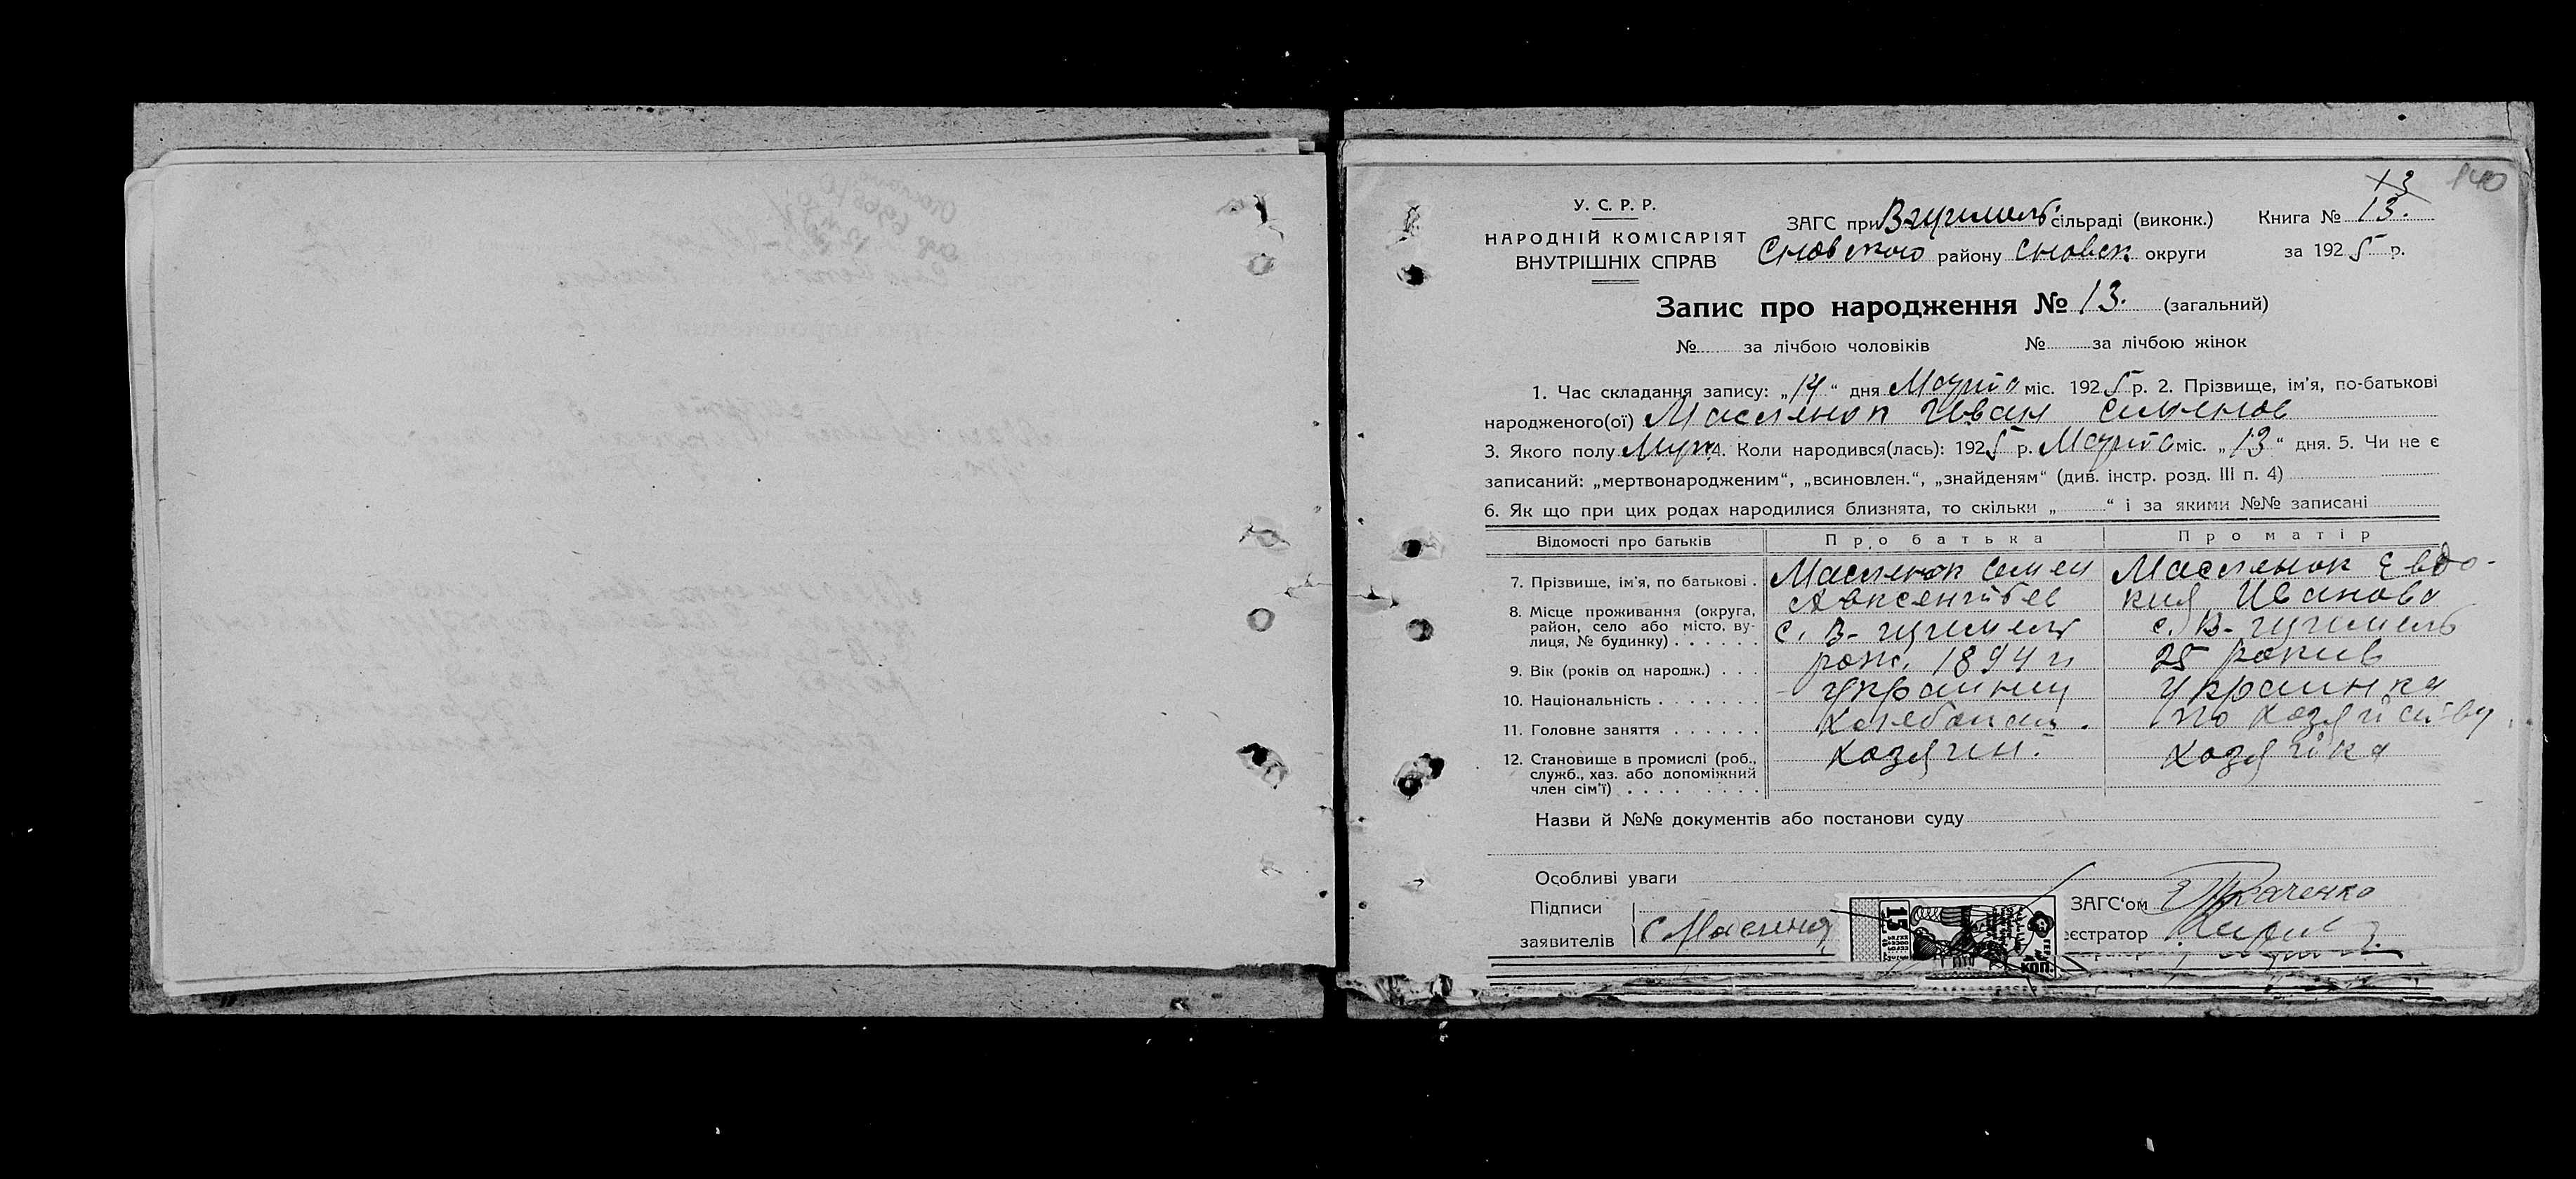 140
13
У. С. Р. Р.
НАРОДНІЙ КОМІСАРІЯТ
ВНУТРІШНІХ СПРАВ
ЗАГС при Вгущимель сільраді (виконк.) Книга № 13.
Сновского району Сновск. округи за 1925 р.
Запис про народження № 13. (загальний)
№ за лічбою чоловіків № за лічбою жінок
1. Час складання запису: „14“ дня Марта міс. 1925 р. 2. Прізвище, ім'я, по-батькові
народженого(ої) Масленок Иван Семенов
3. Якого полу Муж. 4. Коли народився(лась): 1925 р. Марта міс. „13“ дня. 5. Чи не є
записаний: „мертвонародженим“, „всиновлен.“, „знайденям“ (див. інстр. розд. III п. 4)
6. Як що при цих родах народилися близнята, то скільки „ “ і за якими №№ записані
Відомості про батьків Про батька Про матір
7. Прізвище, ім'я, по батькові . Масленок Семен Масленок Евдо-
Авксентьев кия Иванова
8. Місце проживання (округа,
район, село або місто, ву-
лиця, № будинку) . . . . . . с. В- щимель с. В- щимель
9. Вік (років од народж.) . . . рож. 1894 г 25 рокив
10. Національність . . . . . . . Украинец Украинка
11. Головне заняття . . . . . . Хлебопаш. по хозяйству
12. Становище в промислі (роб.,
служб., хаз. або допоміжний
член сім'ї) . . . . . . . . . хозяин. хозяйка
Назви й №№ документів або постанови суду
Особливі уваги
Підписи
заявителів С Маслено
15
КОП.
ЗАГС'ом Ткаченко
еєстратор